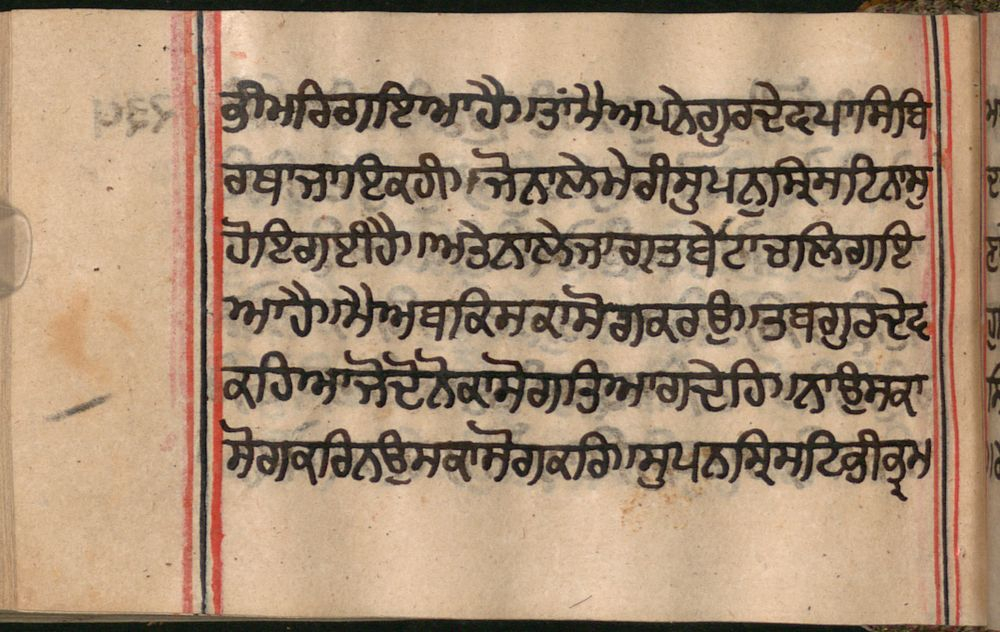 ਭੀਮਰਿਗਇਆਹੈ॥ਤਾਂਮੈਅਪਨੇਗੁਰਦੇਵਪਾਸਿਬਿ
ਰਥਾਜਾਇਕਹੀ॥ਜੋਨਾਲੇਮੇਰੀਸੁਪਨੁਸ੍ਰਿਸਟਿਨਾਸੁ
ਹੋਇਗਈਹੈ॥ਅਤੇਨਾਲੇਜਾਗ੍ਰਤਬੇਟਾਚਲਿਗਇ
ਆਹੈ॥ਮੈਅਬਕਿਸਕਾਸੋਗਕਰਉ॥ਤਬਗੁਰਦੇਵ
ਕਹਿਆਜੋਦੋਨੋਕਾਸੋਗਤਿਆਗਦੇਹਿ॥ਨਾਉਸਕਾ
ਸੋਗਕਰਿਨਉਸਕਾਸੋਗਕਰਿ॥ਸੁਪਨਸ੍ਰਿਸਟਿਭੀਭ੍ਰਮ